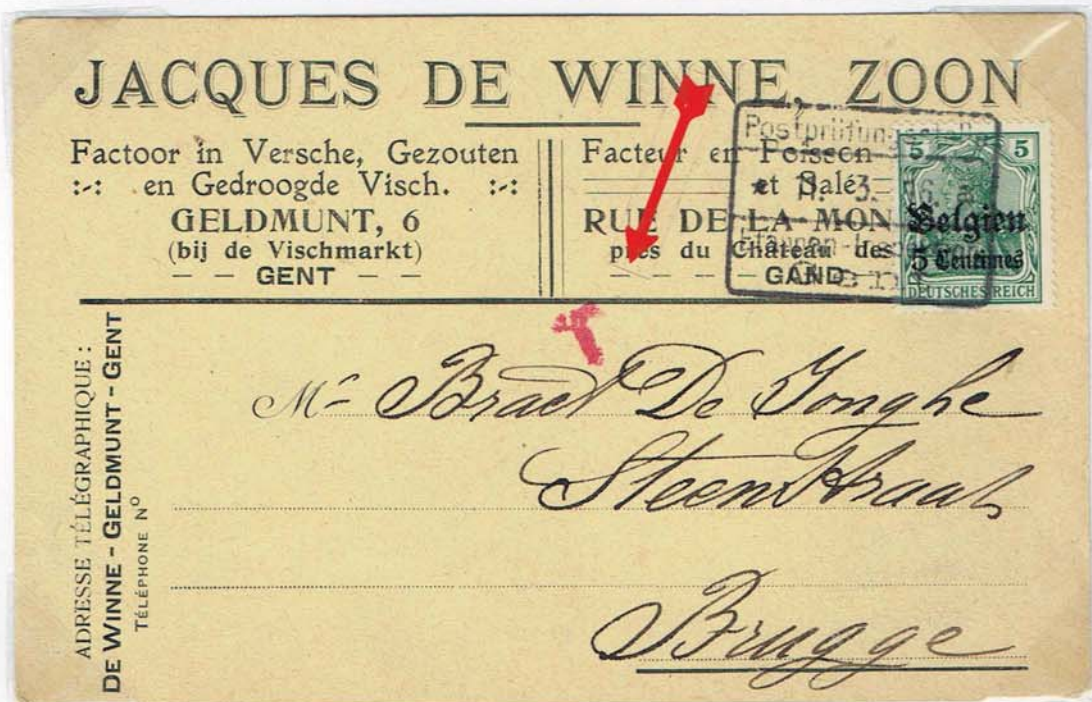 JACQUES DE WINNE, ZOON
Factoor in Versche, Gezouten
:-: en Gedroogde Visch. :-:
GELDMUNT, 6
(bij de Vischmarkt)
– – GENT – –
Facteur en Poisson
et Salé
RUE DE LA MON
près du Château des
– – GAND
Postprüfungsstelle
3.
Etappen-
5 5
Belgien
5 Centimes
DEUTSCHES REICH
ADRESSE TÉLÉGRAPHIQUE :
DE WINNE - GELDMUNT - GENT
TÉLÉPHONE No
Mr Braet De Jonghe
Steenstraat
Brugge